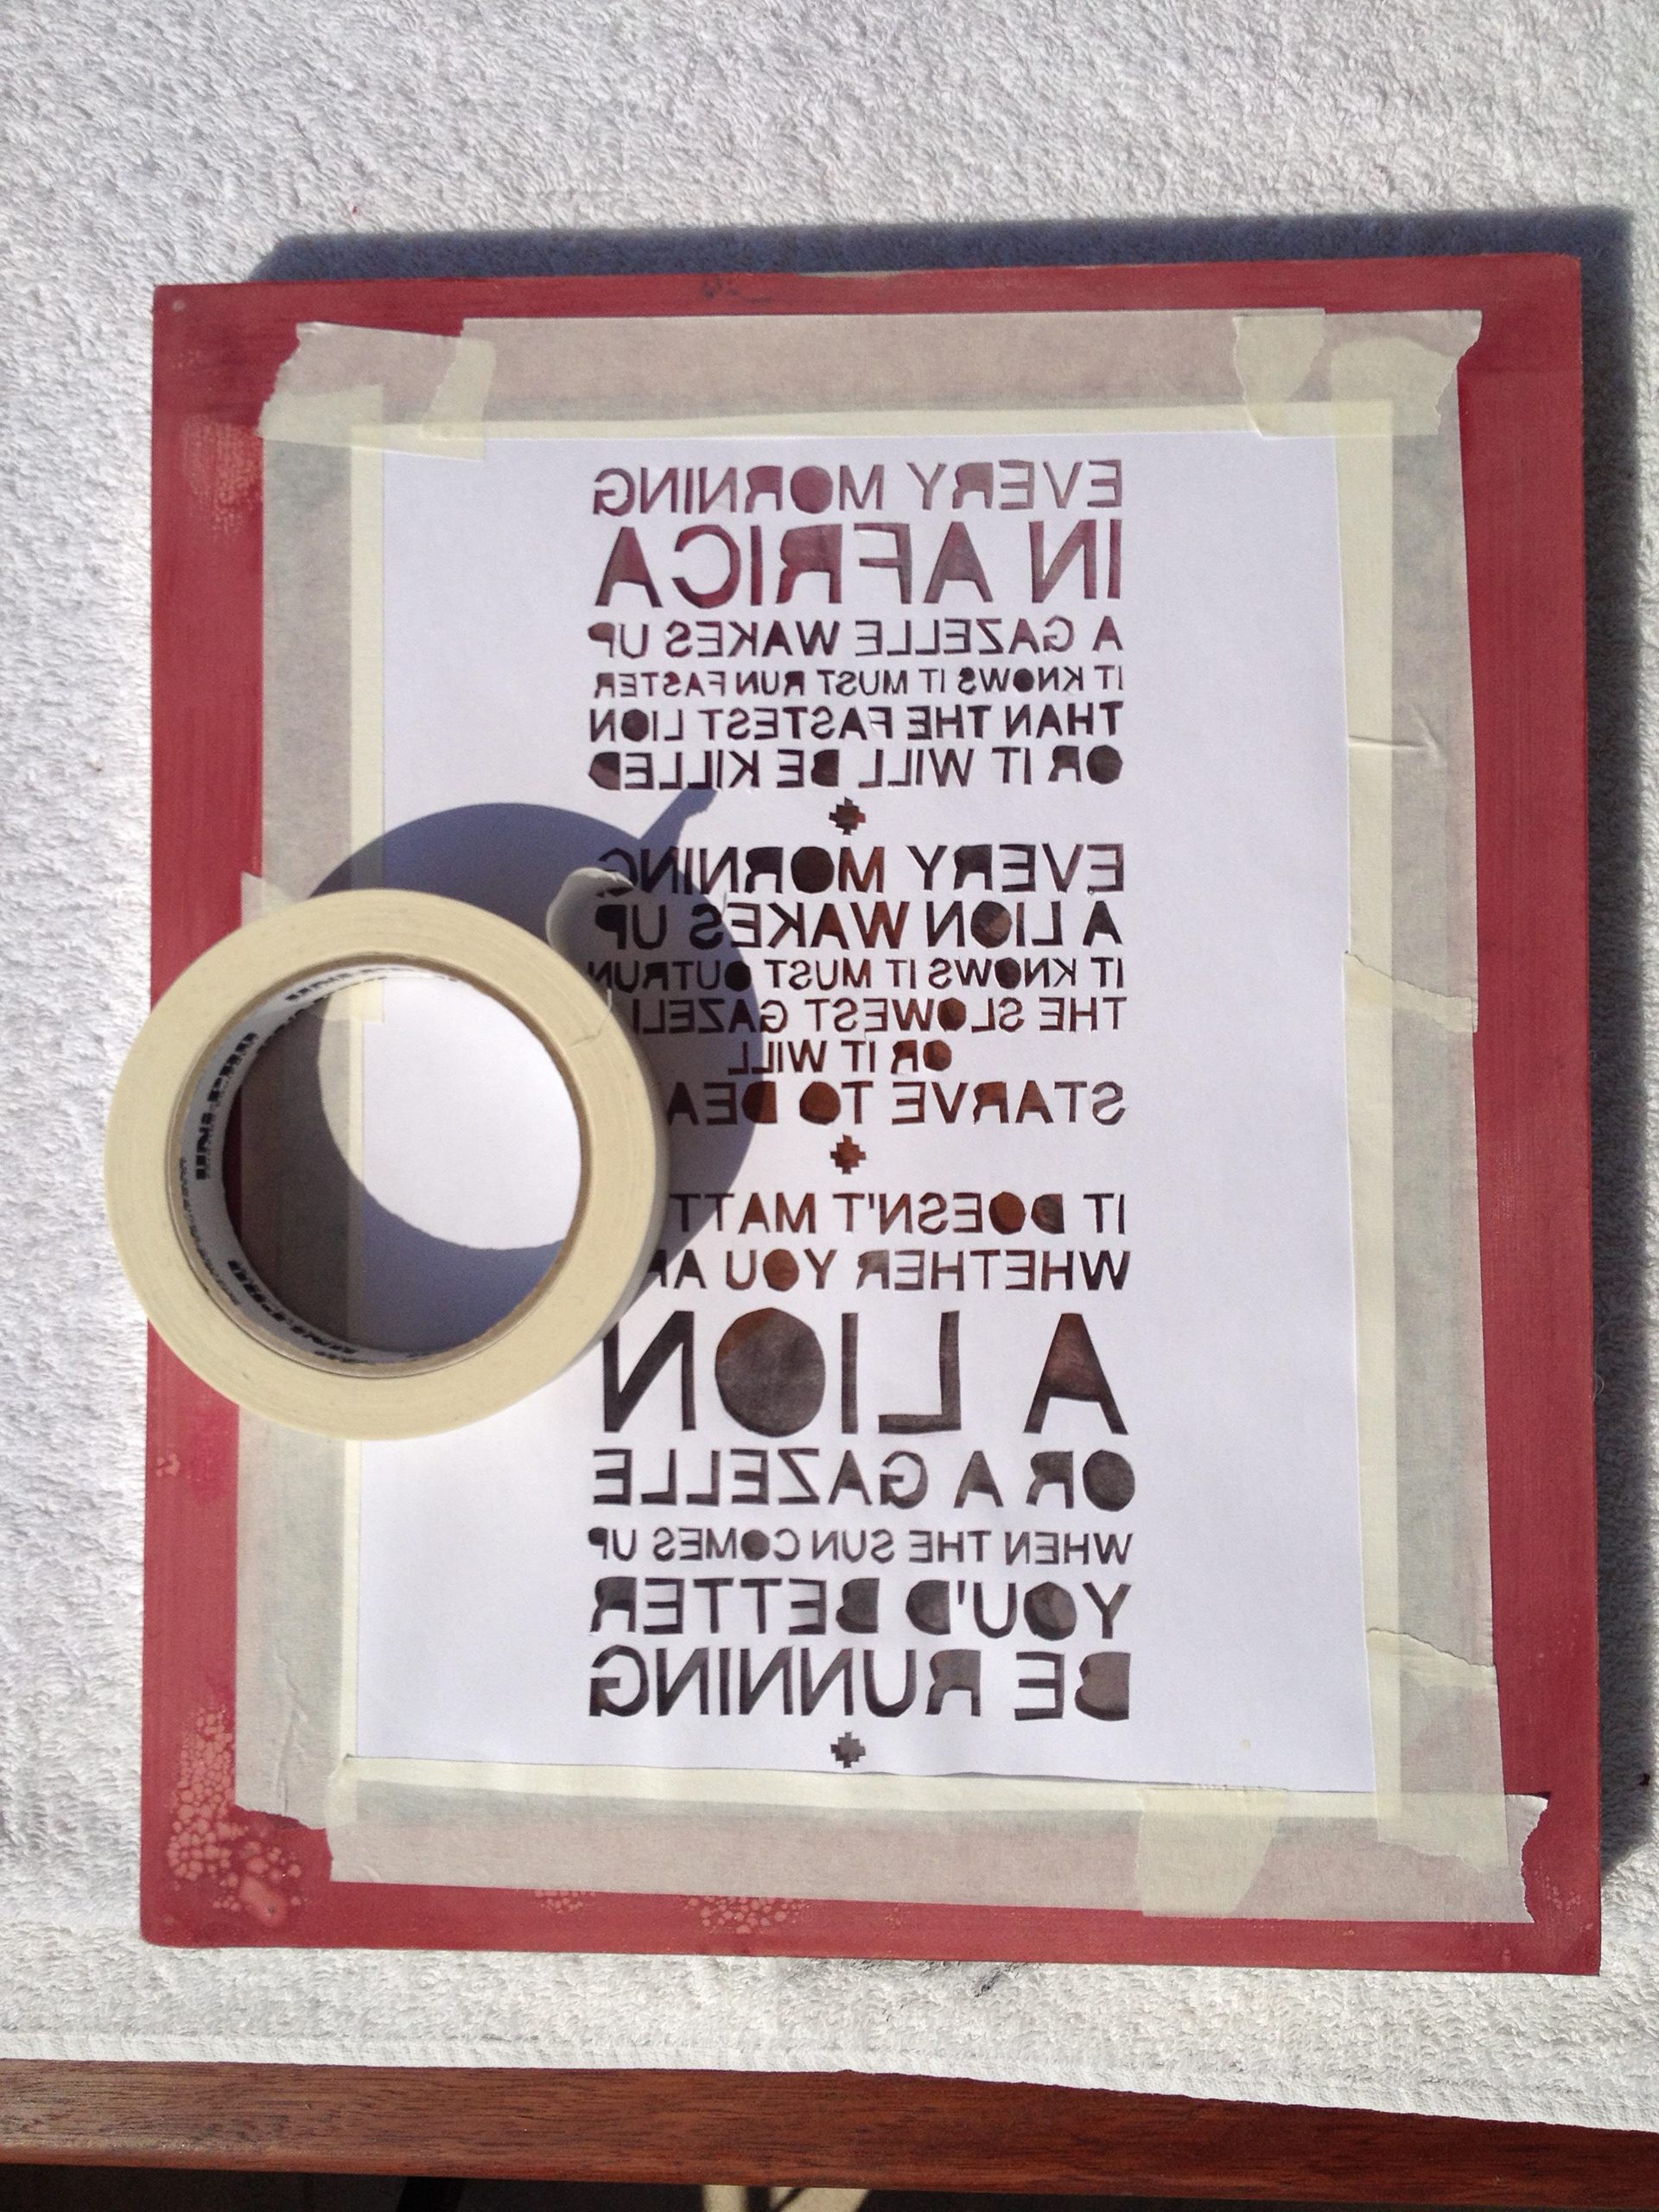 EVERY MORNING
IN AFRICA
A GAZELLE WAKES UP
IT KNOWS IT MUST RUN FASTER
THAN THE FASTEST LION
OR IT WILL BE KILLED
EVERY MORNING
A LION WAKES UP
IT KNOWS IT MUST OUTRUN
THE SLOWEST
OR IT WILL
STARVE TO
IT DOESN'T
WHETHER YOU
A LION
OR A GAZELLE
WHEN THE SUN COMES UP
YOU'D BETTER
BE RUNNING